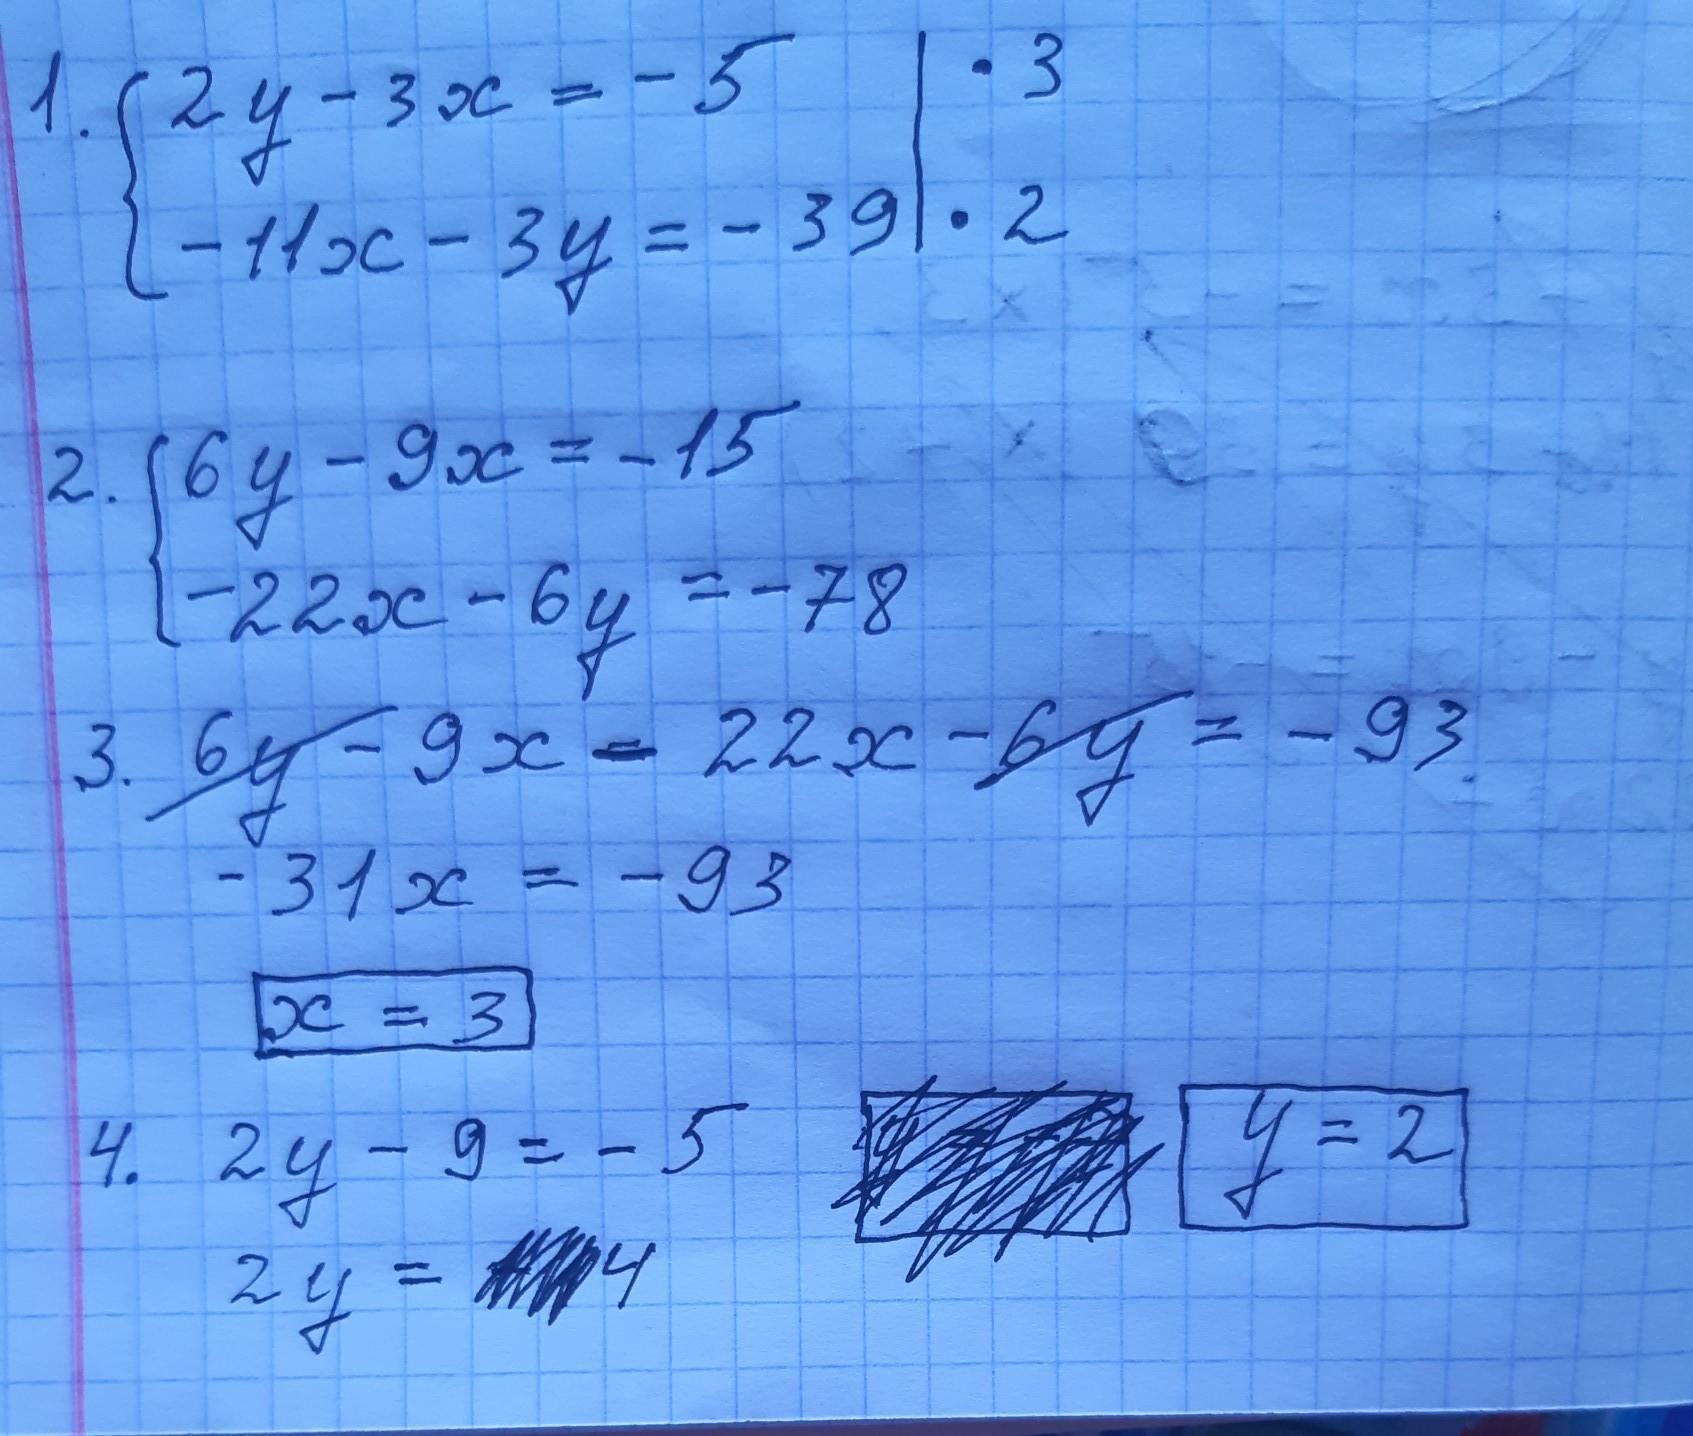 1. { 2y - 3x = -5 | · 3
-11x - 3y = -39 | · 2
2. { 6y - 9x = -15
-22x - 6y = -78
3. 6y - 9x - 22x - 6y = -93
-31x = -93
x = 3
4. 2y - 9 = -5 y = 2
2y = 4